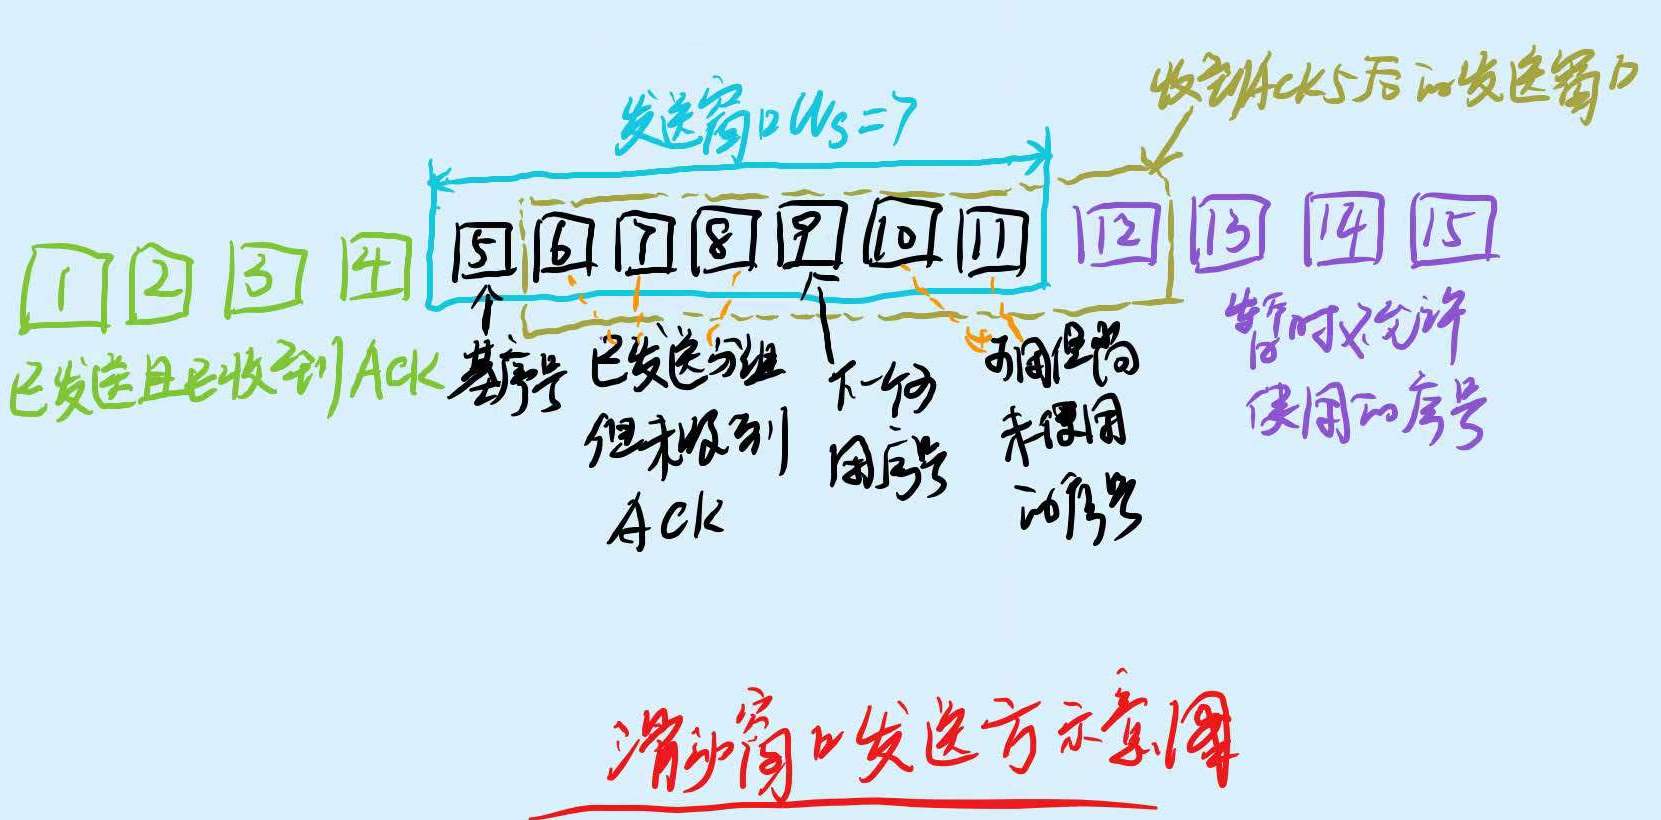 收到ACK5后的发送窗口
发送窗口Ws=7
1 2 3 4 5 6 7 8 9 10 11 12 13 14 15
已发送且已收到ACK
基序号
已发送分组
但未收到
ACK
下一个可
用序号
可用但尚
未使用
的序号
暂时不允许
使用的序号
滑动窗口发送方示意图